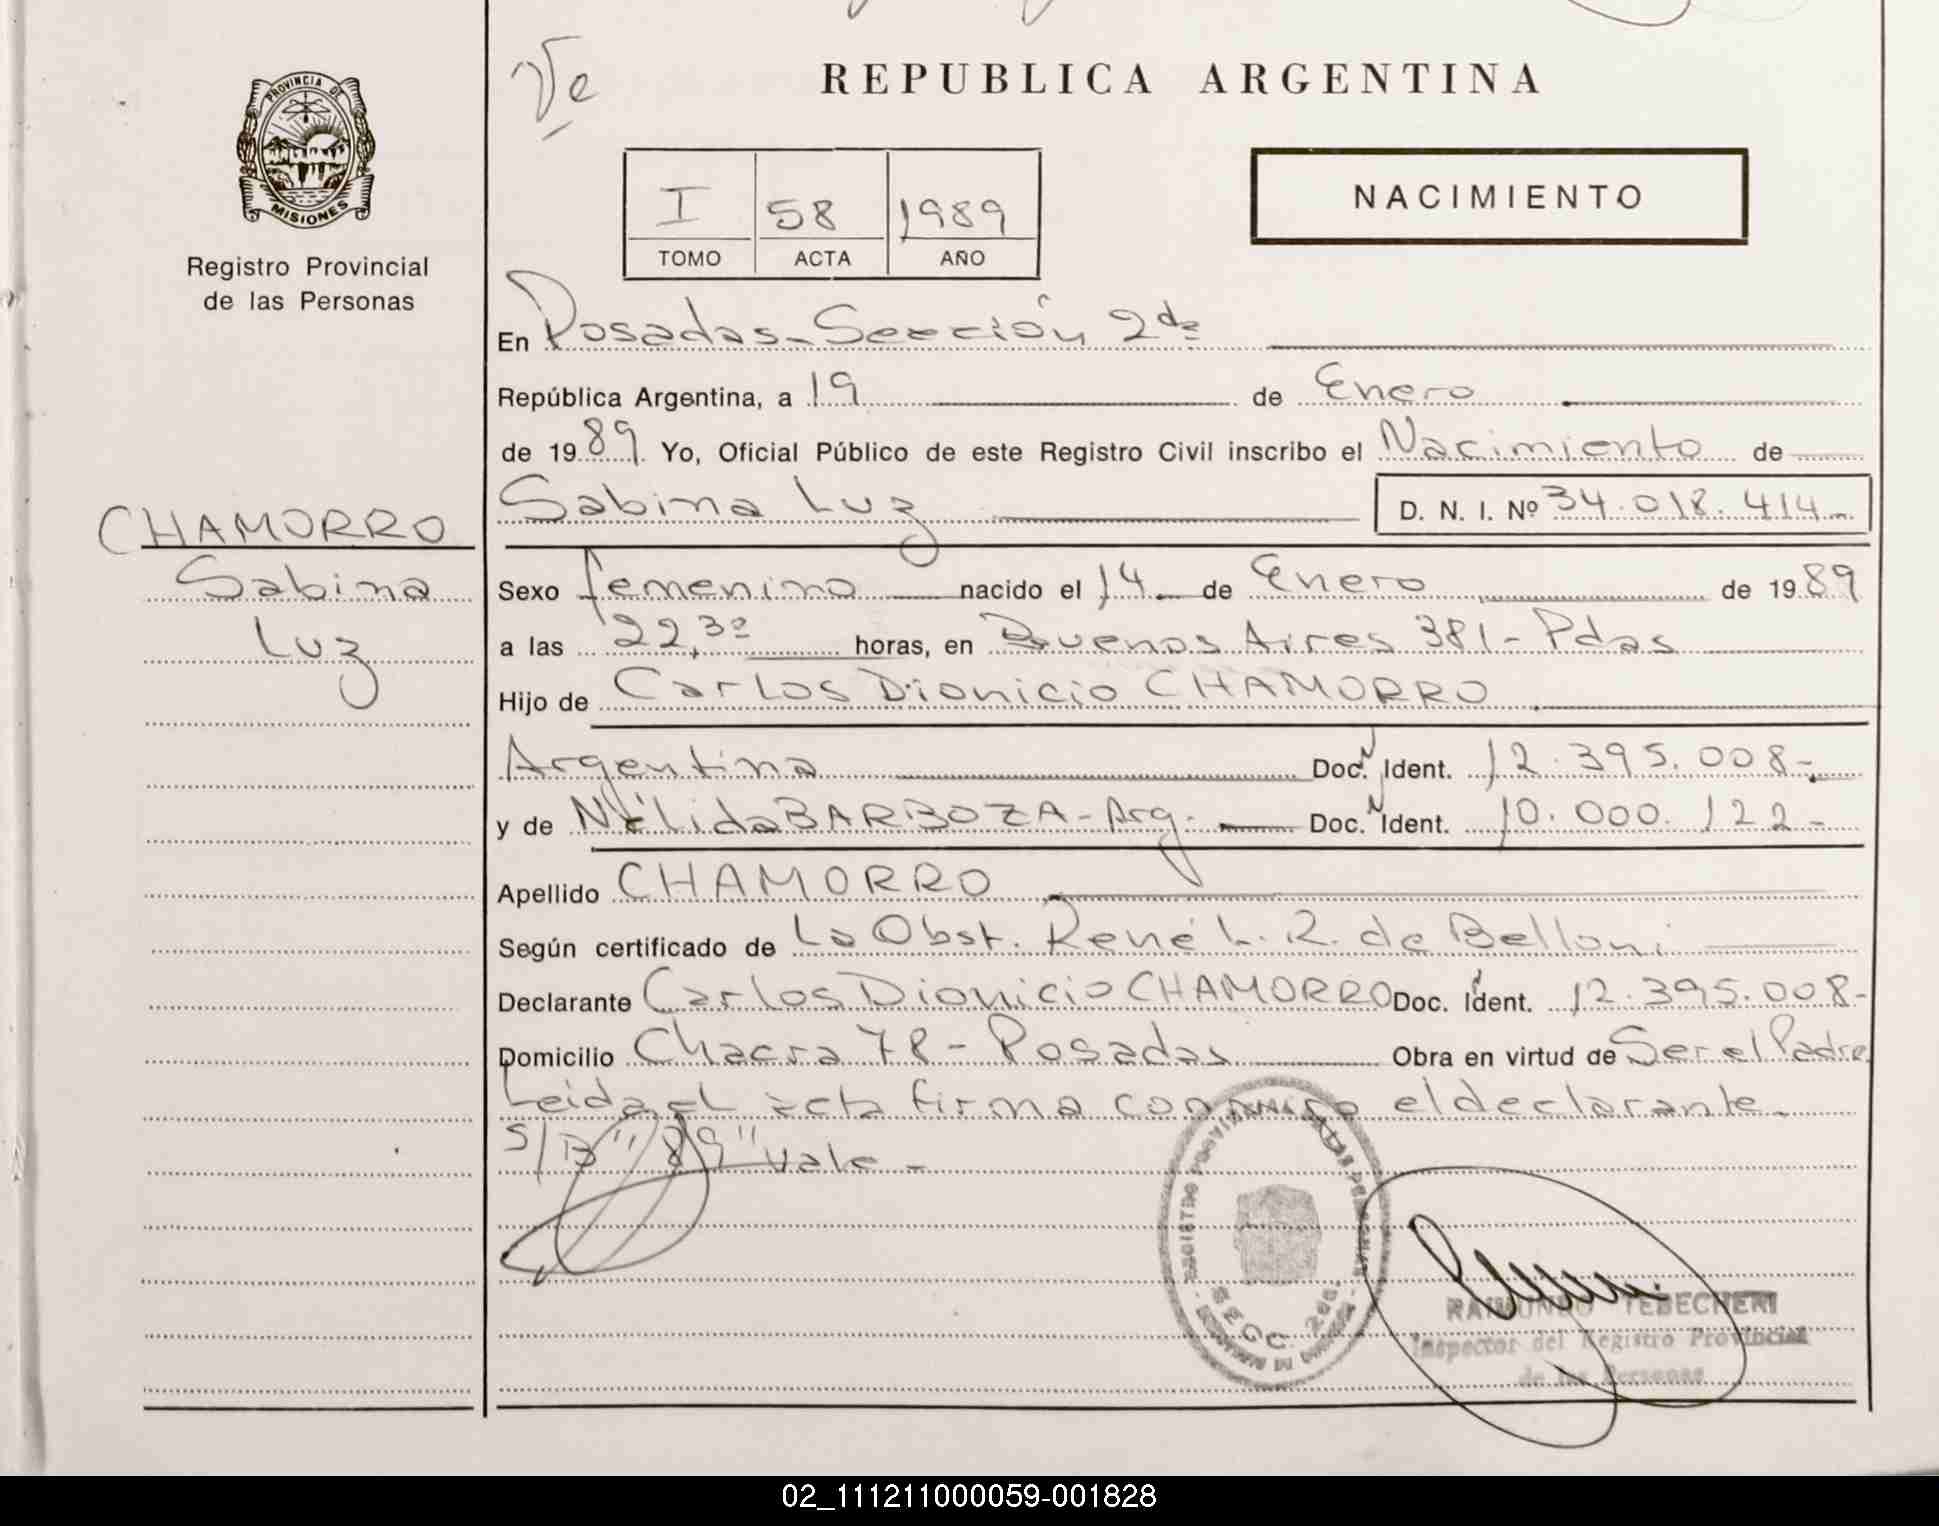 PROVINCIA DE
MISIONES
Registro Provincial
de las Personas
CHAMORRO
Sabina
Luz
REPUBLICA ARGENTINA
I 58 1989
TOMO ACTA AÑO
NACIMIENTO
En Posadas - Sección 2da
República Argentina, a 19 de Enero
de 1989 Yo, Oficial Público de este Registro Civil inscribo el Nacimiento de
Sabina Luz D. N. I. Nº 34.018.414
Sexo femenino nacido el 14 de Enero de 1989
a las 22,30 horas, en Buenos Aires 381 - Pdas
Hijo de Carlos Dionicio CHAMORRO
Argentina Doc. Ident. 12.395.008-
y de Nélida BARBOZA - Arg. Doc. Ident. 10.000.122-
Apellido CHAMORRO
Según certificado de La Obst. René L. R. de Belloni
Declarante Carlos Dionicio CHAMORRO Doc. Ident. 12.395.008-
Domicilio Chacra 78 - Posadas Obra en virtud de Ser el Padre
Leida el acta firma conmigo el declarante.
S/B "89" Vale -
REGISTRO PROVINCIAL DE LAS PERSONAS
SECC. 2da.
RAIMUNDO TEBECHERI
Inspector del Registro Provincial
de las Personas
02_111211000059-001828